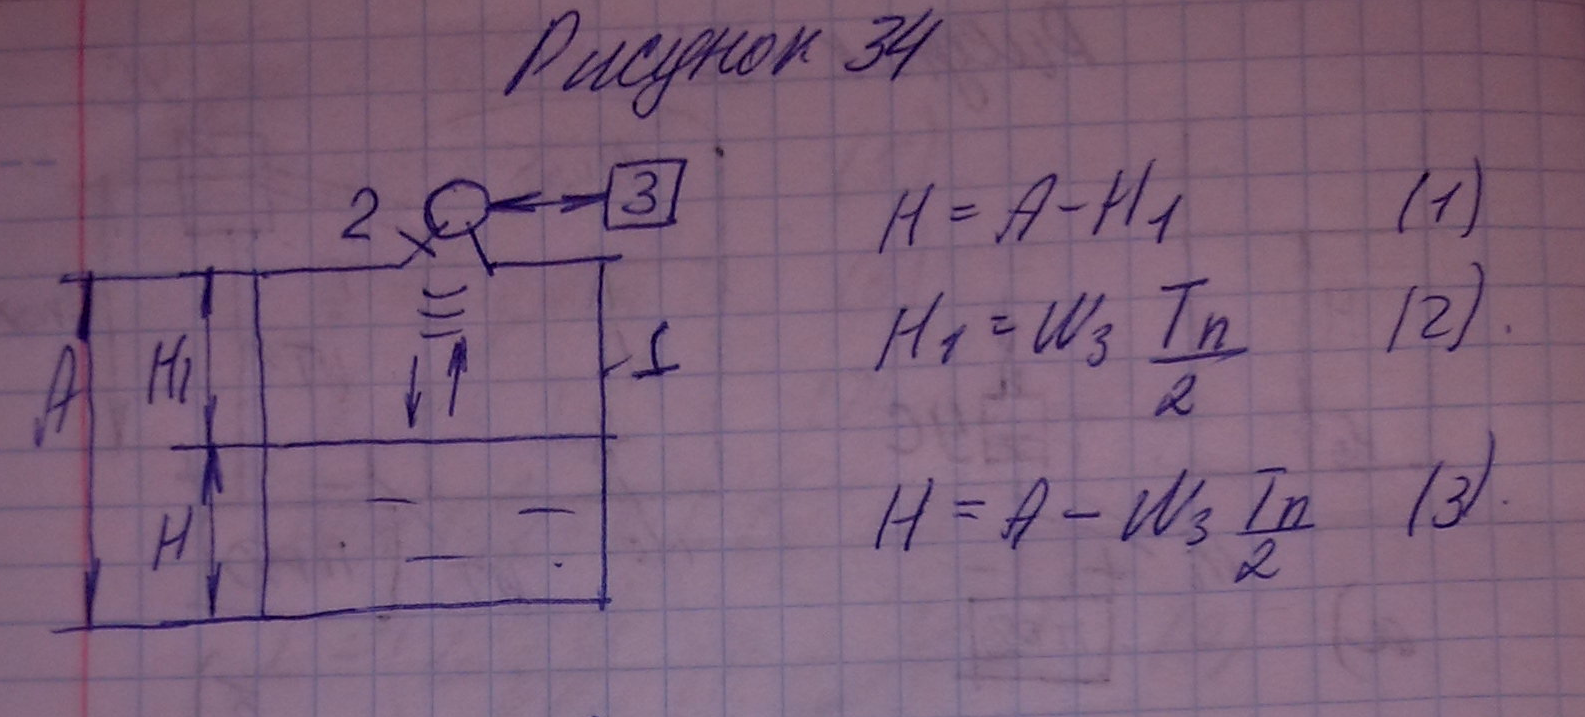 Рисунок 34
2
3
H = A - H₁ (1)
A
H₁
1
H₁ = W₃ Tп/2 (2).
H
H = A - W₃ Tп/2 (3).